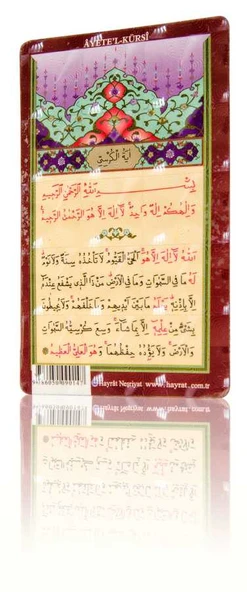 ÂYETE'L-KÜRSÎ
اٰيَةُ الْكُرْسِيّ
بِسْــــمِ اللّٰهِ الرَّحْمٰنِ الرَّحٖيمِ
وَاِلٰهُكُمْ اِلٰهٌ وَاحِدٌ لَٓا اِلٰهَ اِلَّا هُوَ الرَّحْمٰنُ الرَّحٖيمُ
اَللّٰهُ لَٓا اِلٰهَ اِلَّا هُوَ اَلْحَيُّ الْقَيُّومُ لَا تَاْخُذُهُ سِنَةٌ وَلَا نَوْمٌ
لَهُ مَا فِي السَّمٰوَاتِ وَمَا فِي الْاَرْضِ مَنْ ذَا الَّذٖي يَشْفَعُ عِنْدَهُٓ
اِلَّا بِاِذْنِهٖ يَعْلَمُ مَا بَيْنَ اَيْدٖيهِمْ وَمَا خَلْفَهُمْ وَلَا يُحٖيطُونَ
بِشَيْءٍ مِنْ عِلْمِهٖٓ اِلَّا بِمَا شَٓاءَ وَسِعَ كُرْسِيُّهُ السَّمٰوَاتِ
وَالْاَرْضَ وَلَا يَؤُ۫دُهُ حِفْظُهُمَا وَهُوَ الْعَلِيُّ الْعَظٖيمُ
Hayrât Neşriyat www.hayrat.com.tr